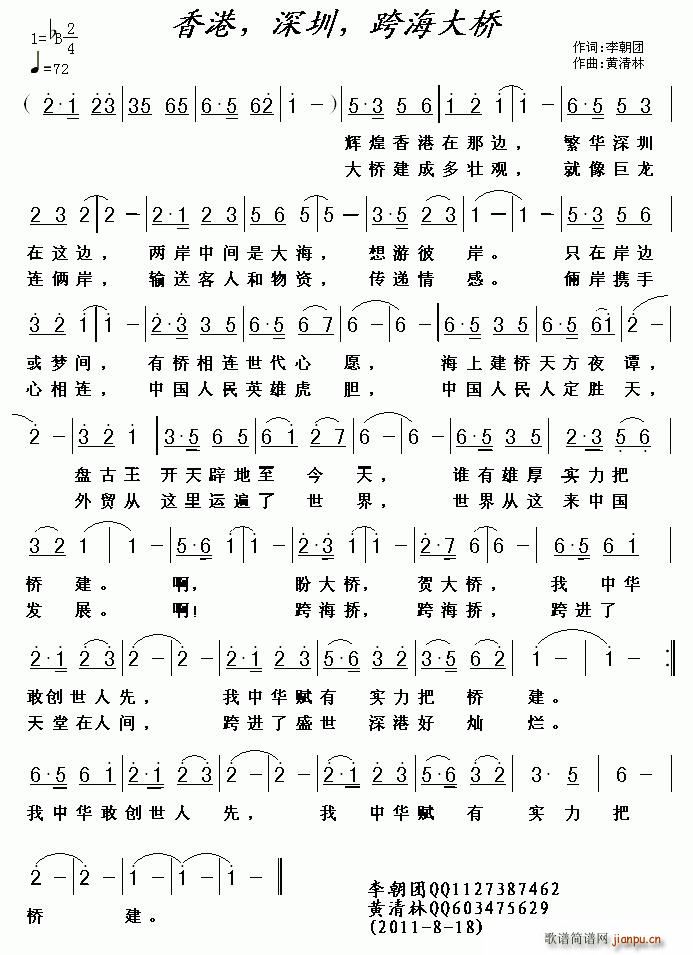 香港，深圳，跨海大桥
1=♭B 2/4
♩=72
作词:李朝团
作曲:黄清林
（ 2·1 23 | 35 65 | 6·5 62 | 1 - ）| 5·3 5 6 | 1 2 1 | 6·5 5 3 |
辉煌香港在那边， 繁华深圳
大桥建成多壮观， 就像巨龙
2 3 2 | 2 - | 2·1 2 3 | 5 6 5 | 5 - | 3·5 2 3 | 1 - | 1 - | 5·3 5 6 |
在这边， 两岸中间是大海， 想游彼 岸。 只在岸边
连俩岸， 输送客人和物资， 传递情 感。 俩岸携手
3 2 1 | 1 - | 2·3 3 5 | 6·5 6 7 | 6 - | 6 - | 4·5 3 2 | 6·5 6 1 | 2 -
或梦间， 有桥相连世代心 愿， 海上建桥天方夜 谭，
心相连， 中国人民英雄虎 胆， 中国人民人定胜 天，
2 - | 3 2 1 | 3·5 6 5 | 6 1 2 7 | 6 - | 6 - | 6·5 3 5 | 2·3 5 6 |
盘古王 开天辟地至 今 天， 谁有雄厚 实力把
外贸从 这里运遍了 世 界， 世界从这 来中国
3 2 1 | 1 - | 5·6 1 | 1 - | 2·3 3 | 3 - | 2·7 6 | 6 - | 5·6 6 1 |
桥 建。 啊， 盼大桥， 贺大桥， 我 中华
发 展。 啊! 跨海挢， 跨海挢， 跨进了
2·1 2 3 | 2 - | 2 - | 2·1 2 3 | 5·6 3 2 | 3·5 6 2 | 1 - | 1 - :‖
敢创世人先， 我中华赋有 实力把 桥 建。
天堂在人间， 跨进了盛世 深港好 灿 烂。
6·5 6 1 | 2·1 2 3 | 2 - | 2 - | 2·1 2 3 | 5·6 3 2 | 3· 5 | 6 - |
我中华敢创世人 先， 我 中华赋 有 实 力 把
2 - | 2 - | 1 - | 1 - ‖
桥 建。
李朝团QQ1127387462
黄清林QQ603475629
(2011-8-18)
歌谱简谱网
jianpu.cn